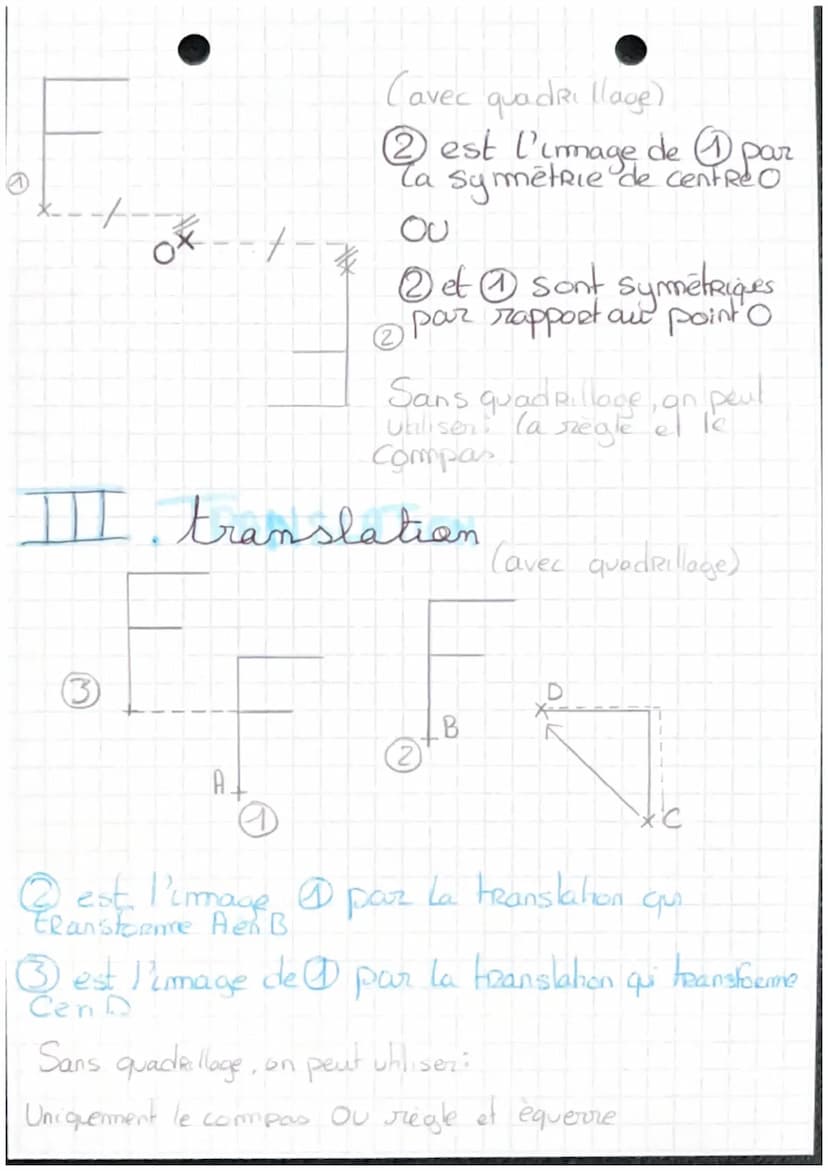 (avec quadrillage)
② est l'image de ① par
la symétrie de centre O
①
OU
O
② et ① sont symétriques
par rapport au point O
②
Sans quadrillage, on peut
utiliser: la règle et le
compas.
III. translation
(avec quadrillage)
③
D
B
②
A
①
C
② est l'image ① par la translation qui
transforme A en B
③ est l'image de ① par la translation qi transforme
C en D
Sans quadrillage, on peut utiliser:
Uniquement le compas OU règle et équerre